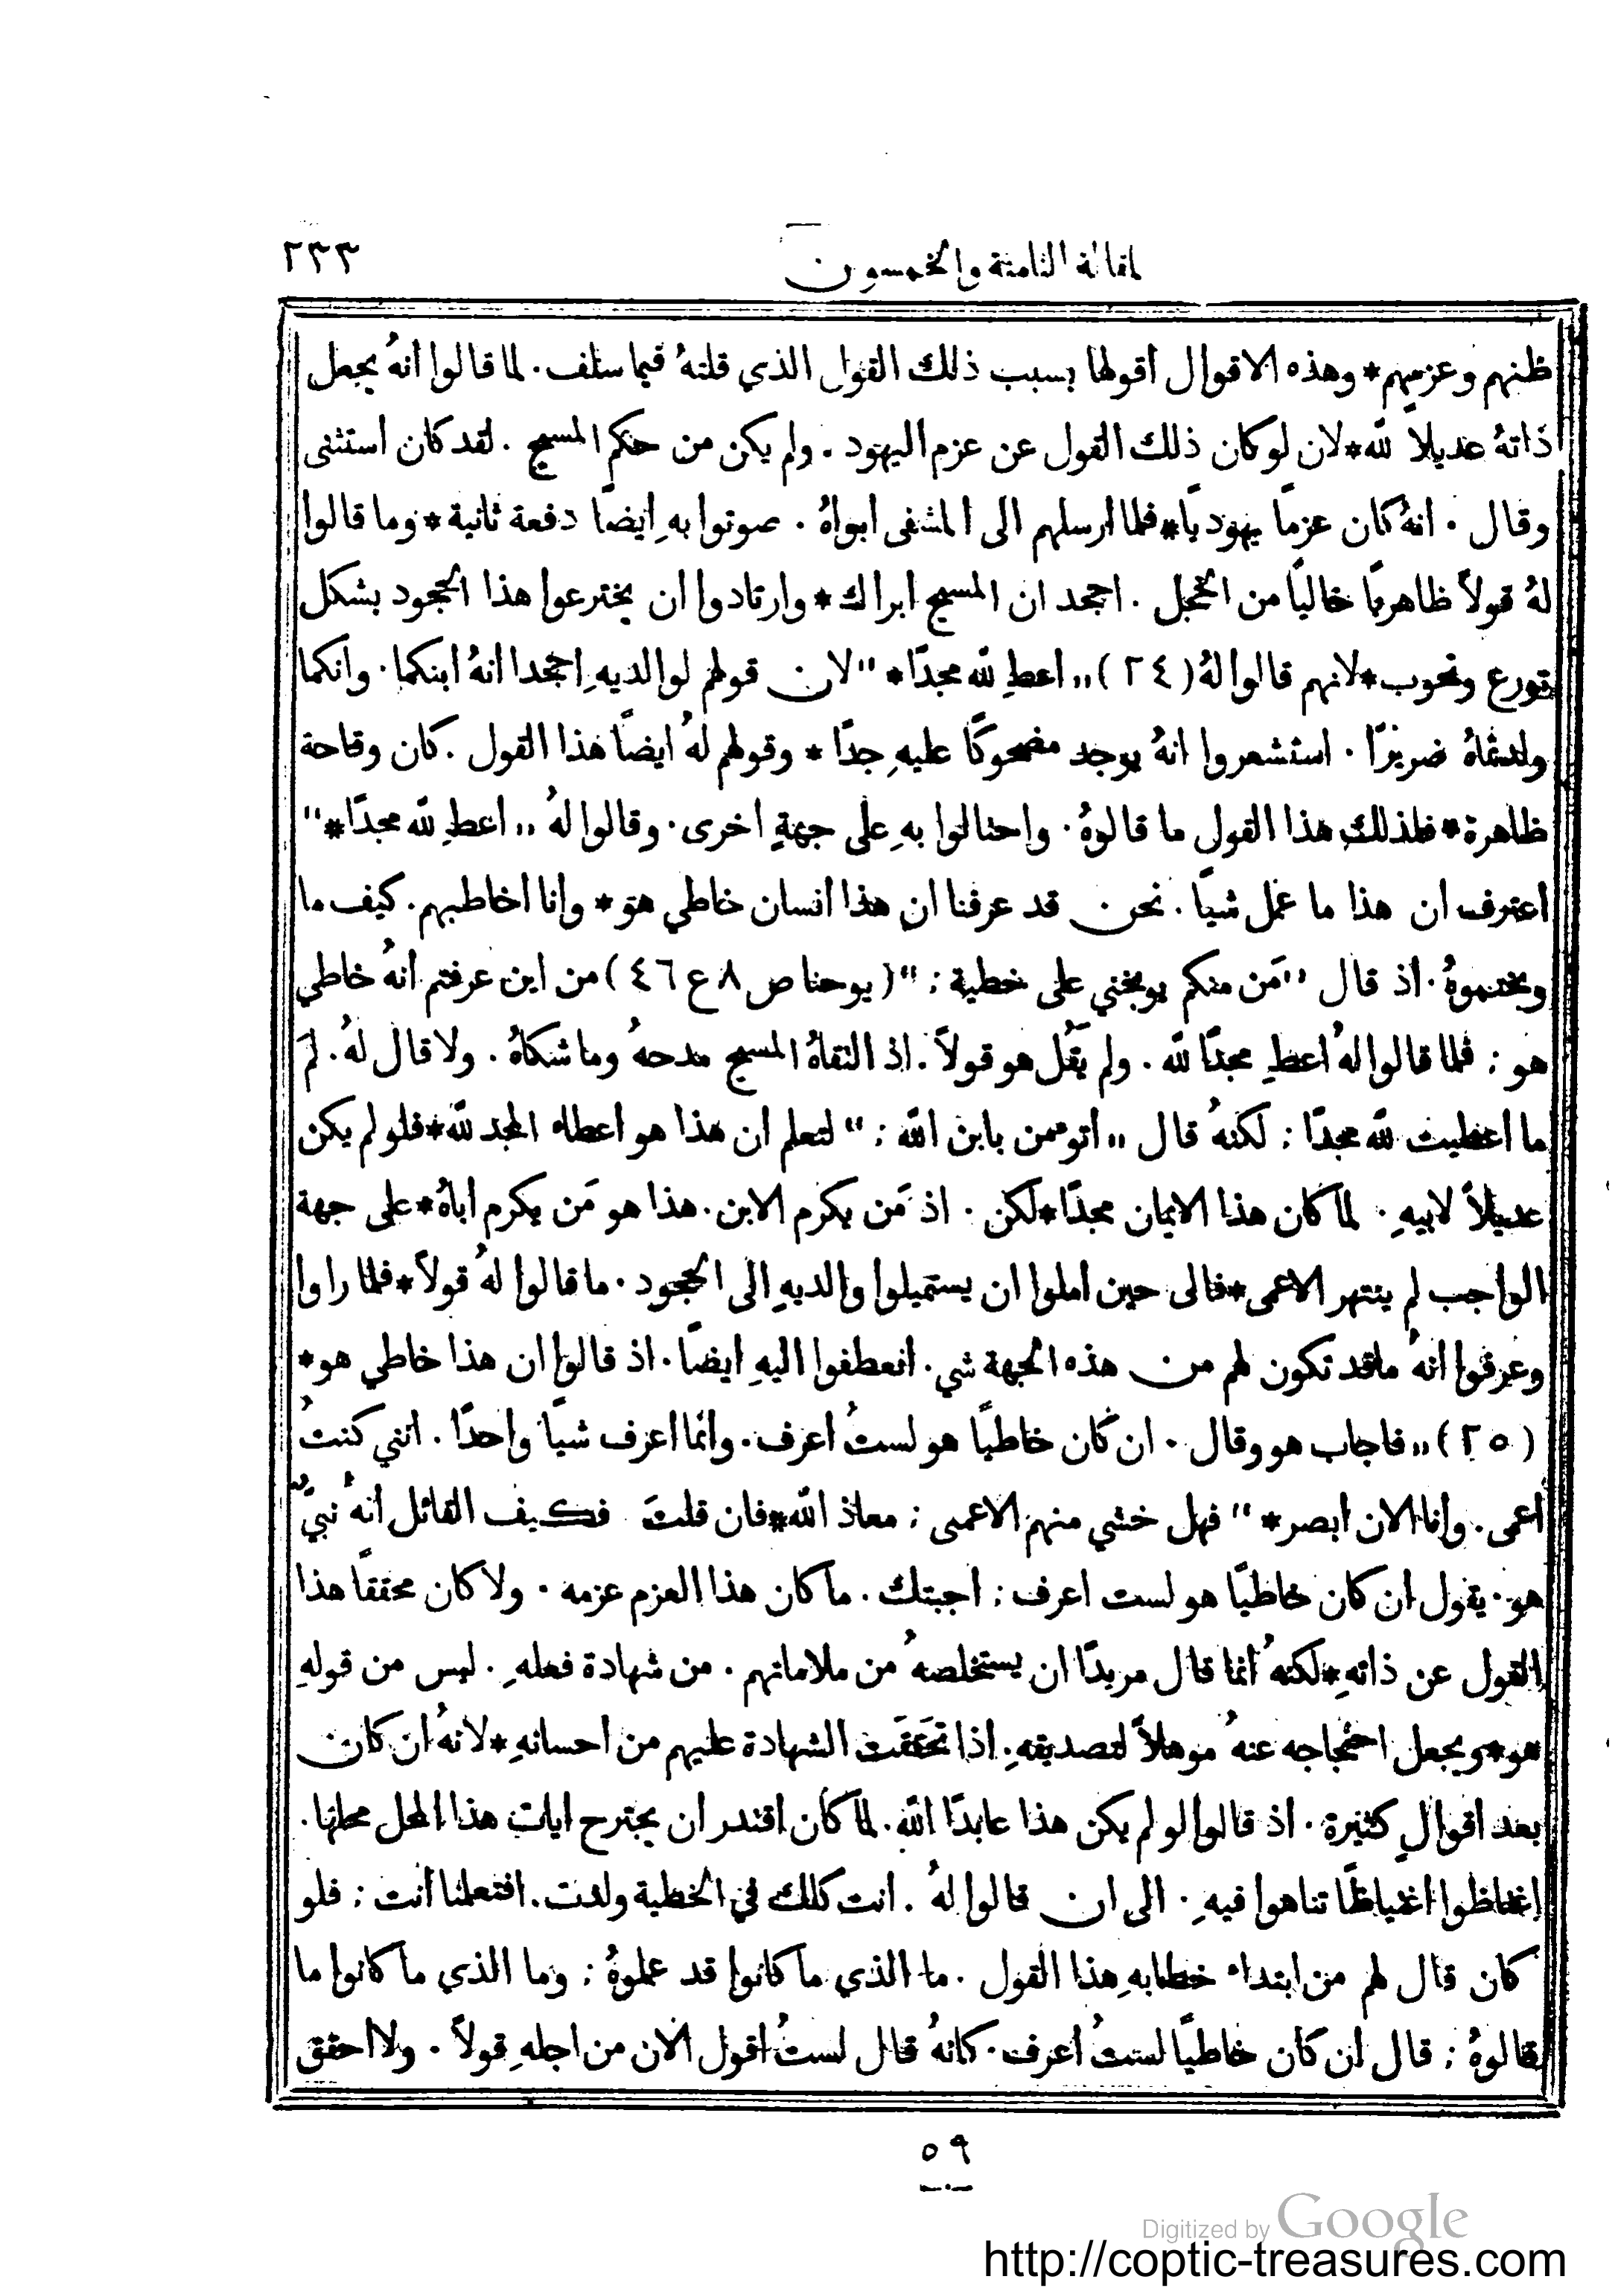 المقالة الثامنة والخمسون ٢٣٣
ظنهم وعزمهم* وهذه الاقوال اقولها بسبب ذلك القول الذي قلتهُ فيما سلف. لما قالوا انهُ يجعل
ذاتهُ عديلاً لله* لان لو كان ذلك القول عن عزم اليهود. ولم يكن من حكم المسيح. لقد كان استثنى
وقال. انهُ كان عزماً يهوديًا* فلما ارسلهم الى المشفى ابواهُ. صوتوا بهِ ايضًا دفعة ثانية* وما قالوا
لهُ قولاً ظاهريًا خاليًا من الخجل. اجحد ان المسيح ابراك* وارتادوا ان يخترعوا هذا الجحود بشكل
تورع وتحوب* لانهم قالوا لهُ (٢٤) ,, اعطِ لله مجدًا* " لان قولهم لوالديهِ اجحدا انهُ ابنكما. وانكما
ولدتماهُ ضريرًا. استشعروا انهُ يوجد مضحوكًا عليهِ جدًا* وقولهم لهُ ايضًا هذا القول. كان وقاحة
ظاهرة* فلذلك هذا القول ما قالوهُ. واحتالوا بهِ على جهةٍ اخرى. وقالوا لهُ ,, اعطِ لله مجدًا* "
اعترف ان هذا ما عمل شيًا. نحن قد عرفنا ان هذا انسان خاطي هو* وانا اخاطبهم. كيف ما
وبختموهُ. اذ قال ,, مَن منكم يوبخني على خطية؛ " (يوحنا ص ٨ ع ٤٦) من اين عرفتم انهُ خاطي
هو؛ فلما قالوا لهُ اعطِ مجدًا لله. ولم يَقُل هو قولاً. اذ التقاهُ المسيح مدحهُ وما شكاهُ. ولا قال لهُ. لمَ
ما اعطيت لله مجدًا؛ لكنهُ قال ,, اتومن بابن الله؛ " لتعلم ان هذا هو اعطاء المجد لله* فلو لم يكن
عديلاً لابيهِ. لما كان هذا الايمان مجدًا* لكن. اذ مَن يكرم الابن. هذا هو مَن يكرم اباهُ* على جهة
الواجب لم ينتهر الاعمى* فالى حين املوا ان يستميلوا والديهِ الى الجحود. ما قالوا لهُ قولاً* فلما راوا
وعرفوا انهُ ما قد تكون لهم من هذه الجهة شي. انعطفوا اليهِ ايضًا. اذ قالوا ان هذا خاطي هو*
(٢٥) ,, فاجاب هو وقال. ان كان خاطيًا هو لستُ اعرف. وانما اعرف شيًا واحدًا. انني كنتُ
اعمى. وانا الان ابصر* " فهل خشي منهم الاعمى؛ معاذ الله* فان قلتَ فكيف القائل انهُ نبيٌّ
هو. يقول ان كان خاطيًا هو لست اعرف؛ اجبتك. ما كان هذا العزم عزمه. ولا كان محققًا هذا
القول عن ذاتهِ* لكنهُ انما قال مريدًا ان يستخلصهُ من ملاماتهم. من شهادة فعلهِ. ليس من قولهِ
هو* ويجعل احتجاجه عنهُ موهلاً لتصديقهِ. اذا تحققت الشهادة عليهم من احسانهِ* لانهُ ان كان
بعد اقوالٍ كثيرة. اذ قالوا لو لم يكن هذا عابدًا الله. لما كان اقتدر ان يجترح ايات هذا المحل محلها.
اغتاظوا اغتياظًا تناهوا فيهِ. الى ان قالوا لهُ. انت كلك في الخطية ولدت. افتعلمنا انت؛ فلو
كان قال لهم من ابتداء خطابهِ هذا القول. ما الذي ما كانوا قد عملوهُ؛ وما الذي ما كانوا ما
قالوهُ؛ قال ان كان خاطيًا لستُ اعرف. كانهُ قال لستُ اقول الان من اجلهِ قولاً. ولا احقق
٥٩
Digitized by Google
http://coptic-treasures.com